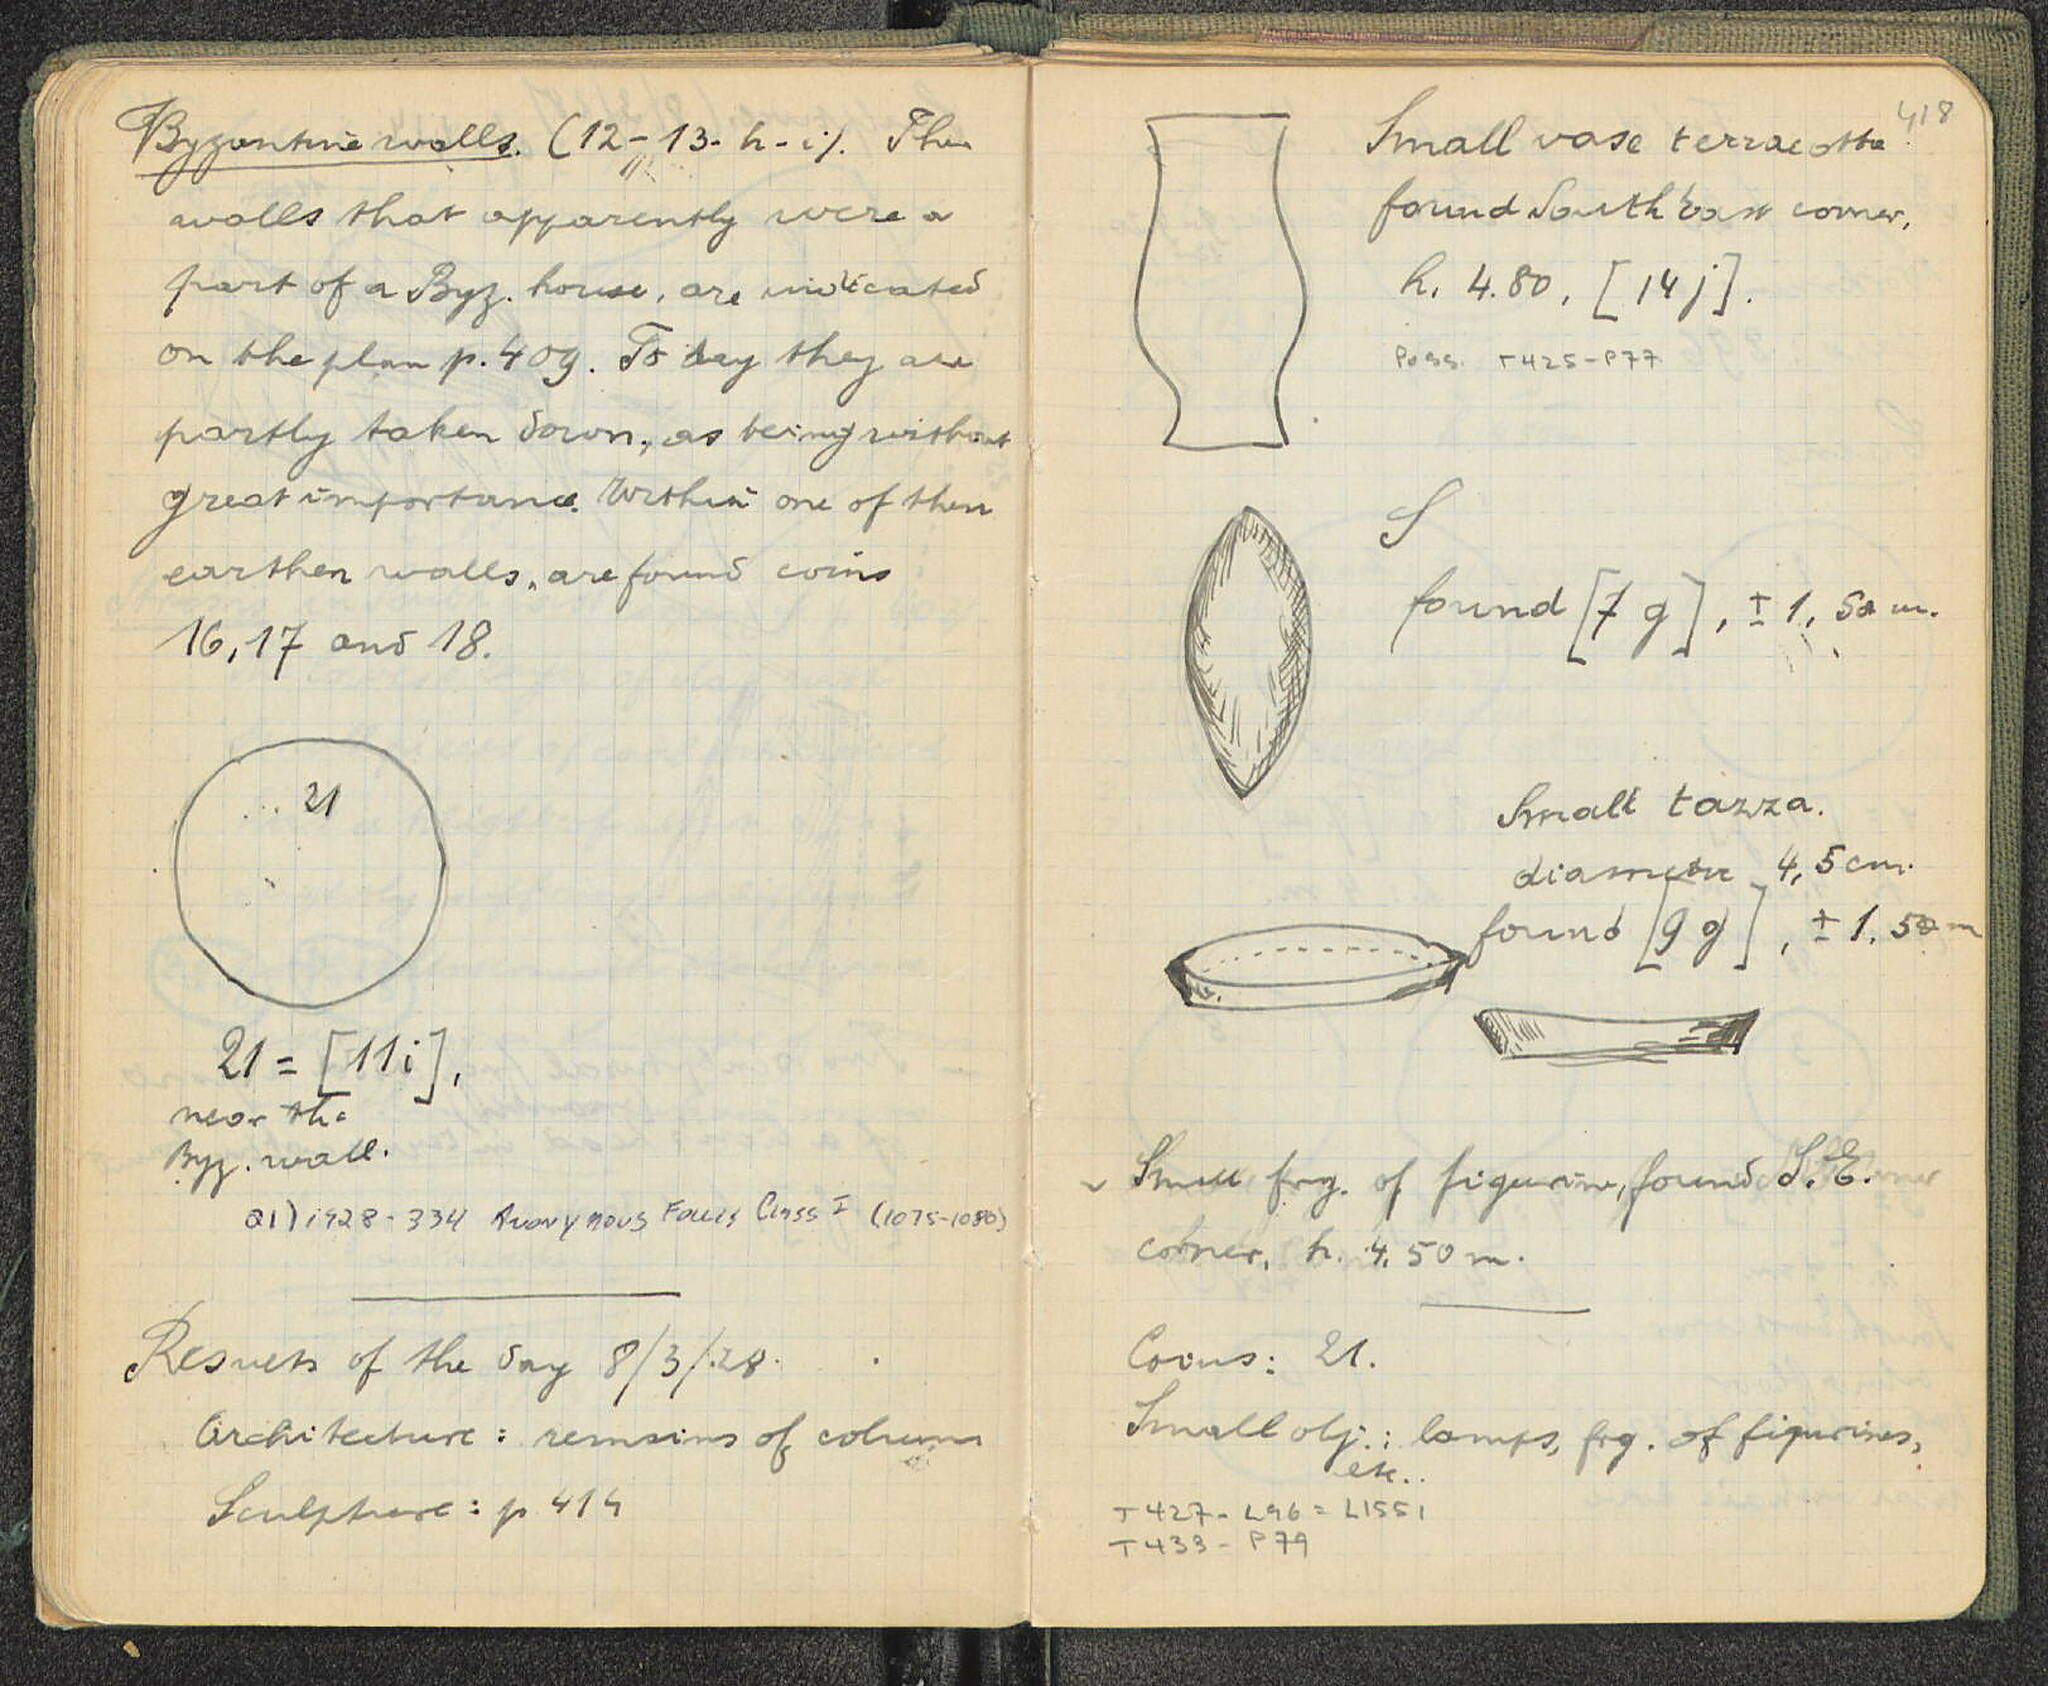 Byzantine walls. (12-13-h-i). The
walls that apparently were a
part of a Byz. house, are indicated
on the plan p. 409. To day they are
partly taken down, as being without
great importance. Within one of then
earthen walls, are found coins
16, 17 and 18.
21
21 = [11i],
near the
Byz. wall.
21) 1928-334 Anonymous Follis Class I (1075-1080)
Results of the day 8/3/28.
Architecture: remains of column
Sculpture: p 414
418
Small vase terracotta
found South East corner,
h. 4.80, [14j].
Poss. T425-P77
S
found [7 g], ± 1, 50 m.
Small tazza.
diameter 4,5 cm.
found [9 g], ± 1.50 m
Small frg. of figurine, found S.E.
corner, h. 4,50 m.
Coins: 21.
Small obj.: lamps, frg. of figurines,
etc..
T427-L96 = L1551
T433-P79